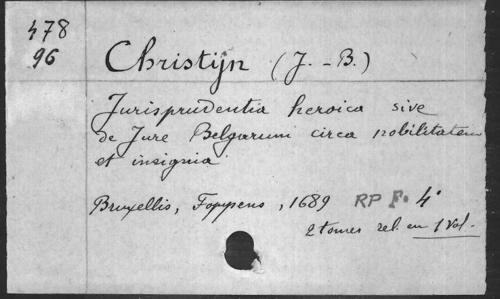 478
96
Christijn (J.-B.)
Jurisprudentia heroica sive
de Jure Belgarum circa nobilitatem
et insignia
Bruxellis, Foppens, 1689 RP F. 4°
2 tomes rel. en 1 Vol.